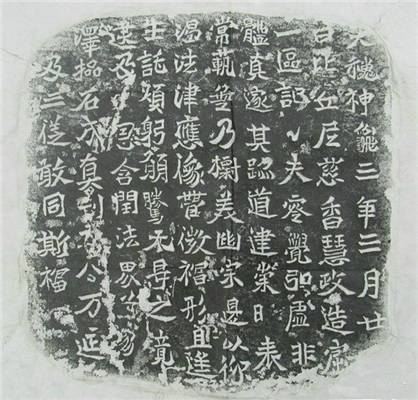 大魏神龜三年三月廿
日比丘尼慈香慧政造窟
一區記〻夫零覺弘虛非
體真邃其跡道建崇日表
常軌無乃標美幽宗是以仰
渴法津應像營微福形且遙
生託煩躬願騰无㝵之境
逮及恩含閏法界
澤石成真刊八万延
及三從敢同斯福